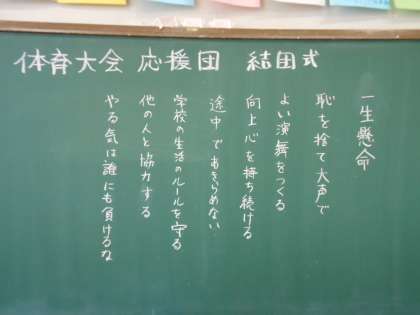 体育大会 応援団 結団式
一生懸命
恥を捨て大声で
よい演舞をつくる
向上心を持ち続ける
途中であきらめない
学校の生活のルールを守る
他の人と協力する
やる気は誰にも負けるな